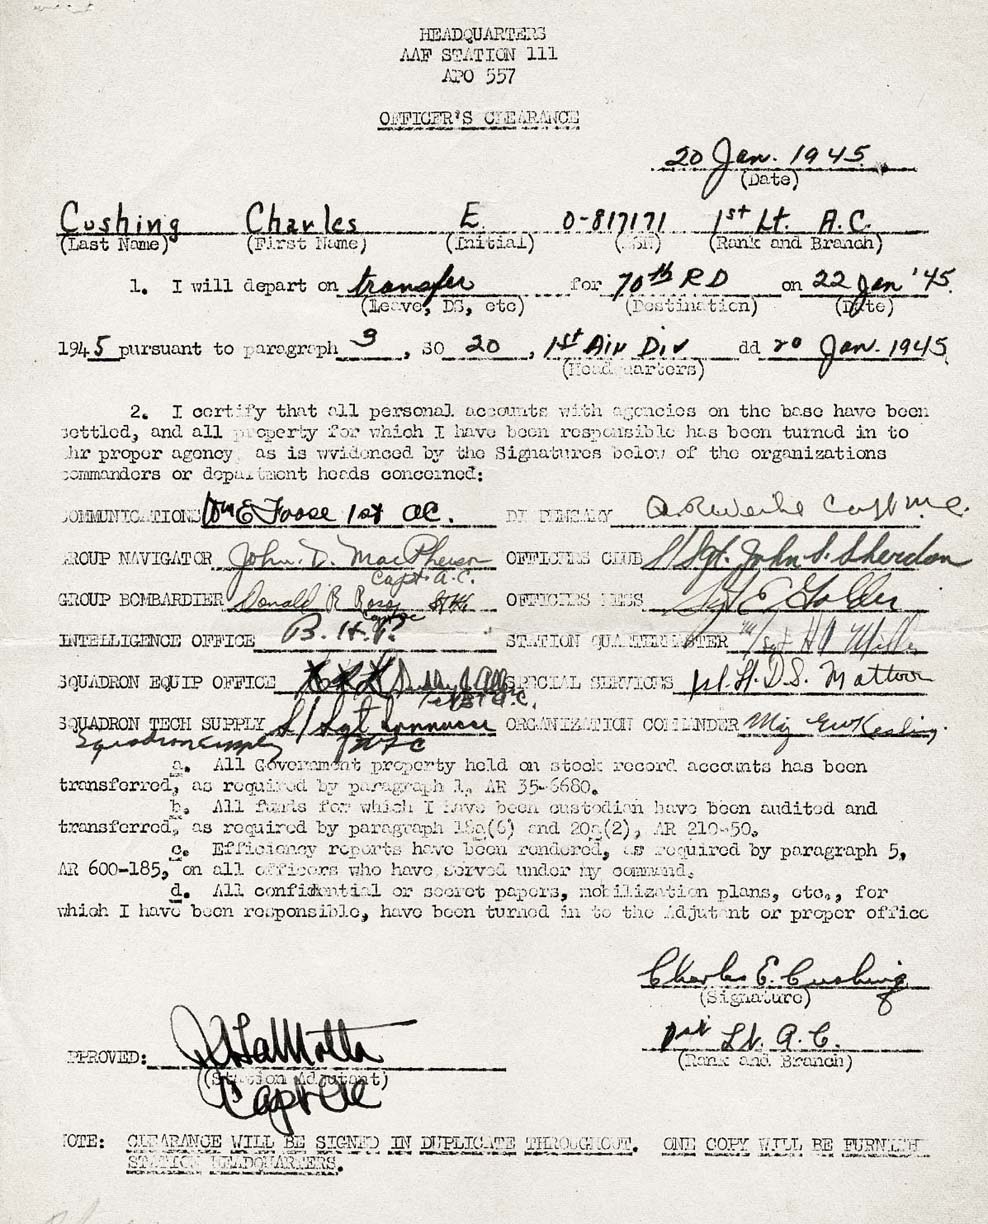 HEADQUARTERS
AAF STATION 111
APO 557
OFFICER'S CLEARANCE
20 Jan. 1945
(Date)
Cushing Charles E. O-817171 1st Lt. A.C.
(Last Name) (First Name) (Initial) (ASN) (Rank and Branch)
1. I will depart on transfer for 70th RD on 22 Jan '45
(Leave, DS, etc) (Destination) (Date)
1945 pursuant to paragraph 3, SO 20, 1st Air Div dd 20 Jan. 1945
(Headquarters)
2. I certify that all personal accounts with agencies on the base have been
settled, and all property for which I have been responsible has been turned in to
hr proper agency as is wvidenced by the Signatures below of the organizations
commanders or department heads concerned:
COMMUNICATIONS Wm E Foose 1st AC. DISPENSARY Capt MC.
GROUP NAVIGATOR John D. MacPherson OFFICERS CLUB S/Sgt. John S. Sheridan
Capt. A.C.
GROUP BOMBARDIER Donald R Ross OFFICERS MESS Sgt E
Capt ac
INTELLIGENCE OFFICE B.H.P. STATION QUARTERMASTER M/Sgt H Miller
SQUADRON EQUIP OFFICE SPECIAL SERVICES 1st. Lt. D.S. Mattoon
1st Lt A.C.
SQUADRON TECH SUPPLY S/Sgt Iannucci ORGANIZATION COMMANDER Maj EW Kesling
Squadron Supply
a. All Government property held on stock record accounts has been
transferred, as required by paragraph 1, AR 35-6680.
b. All funds for which I have been custodian have been audited and
transferred, as required by paragraph 18a(6) and 20a(2), AR 210-50.
c. Efficiency reports have been rendered, as required by paragraph 5,
AR 600-185, on all officers who have served under my command.
d. All confidential or secret papers, mobilization plans, etc., for
which I have been responsible, have been turned in to the Adjutant or proper office
Charles E. Cushing
(Signature)
1st Lt. A.C.
(Rank and Branch)
APPROVED: J LaMotta
(Station Adjutant)
Capt AC
NOTE: CLEARANCE WILL BE SIGNED IN DUPLICATE THROUGHOUT. ONE COPY WILL BE FURNISH
STATION HEADQUARTERS.